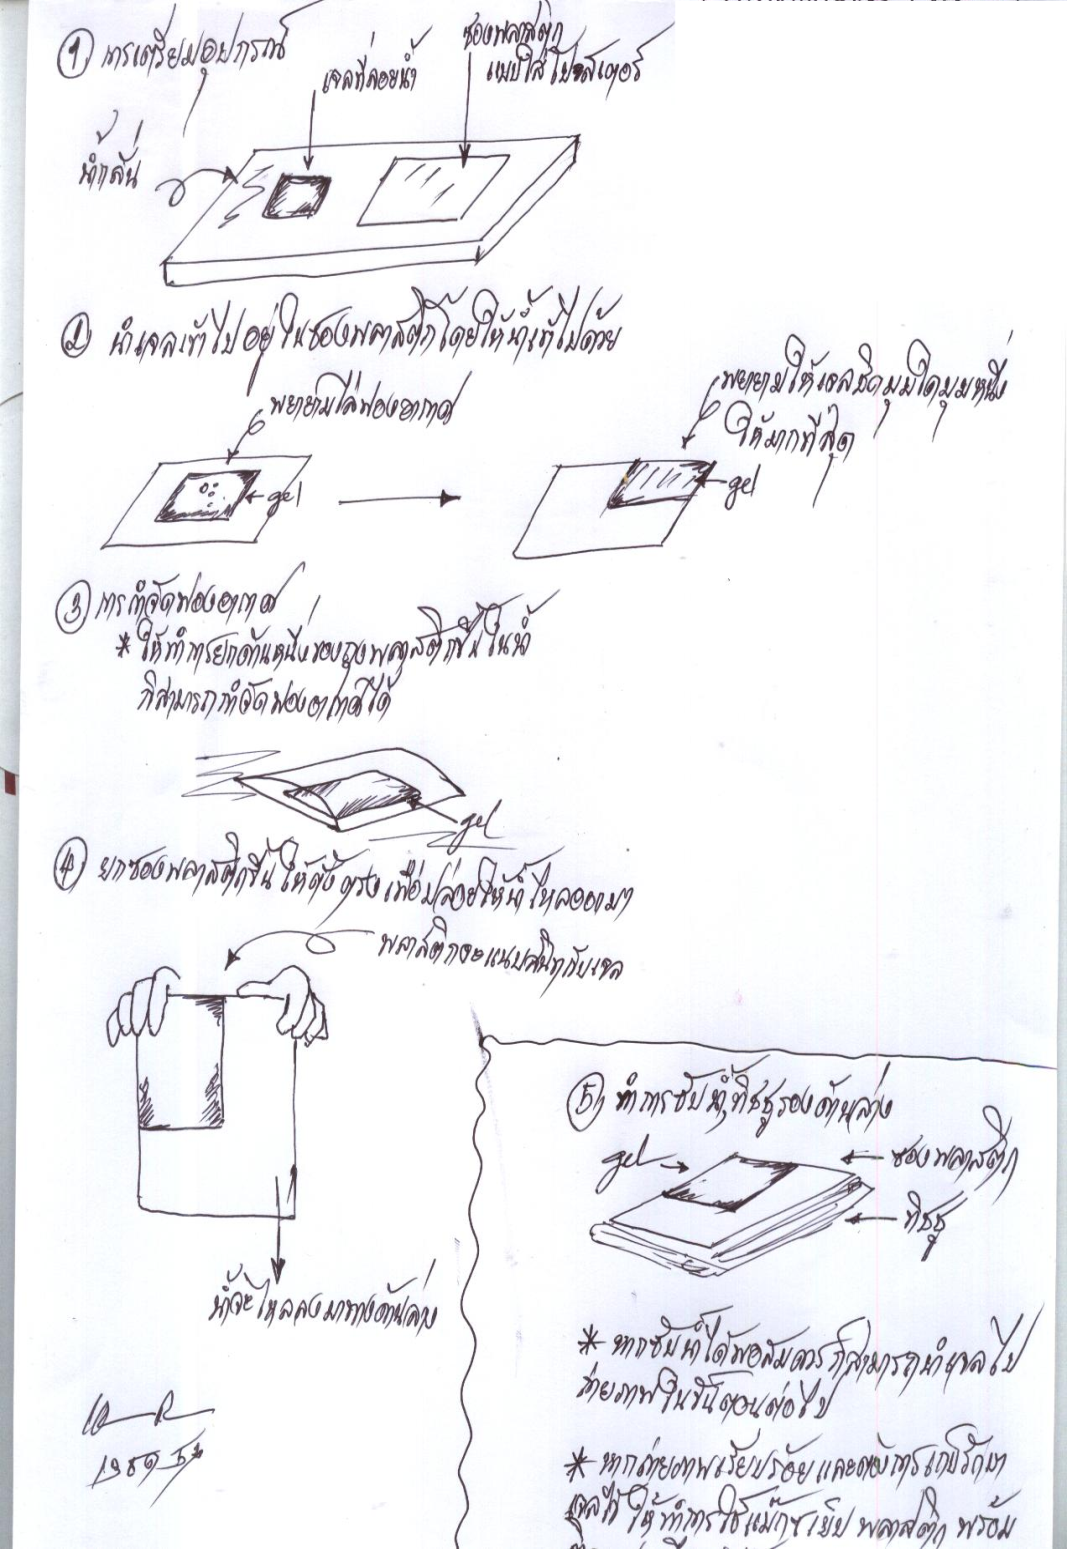 ① การเตรียมอุปกรณ์
เจลที่ลอยน้ำ
ซองพลาสติก
แบบใส่โปสเตอร์
น้ำกลั่น
② นำเจลเข้าไปอยู่ในซองพลาสติกโดยให้น้ำเข้าไปด้วย
พยายามไล่ฟองอากาศ
gel
พยายามให้เจลชิดมุมใดมุมหนึ่ง
ให้มากที่สุด
gel
③ การกำจัดฟองอากาศ
* ให้ทำการยกด้านหนึ่งของถุงพลาสติกขึ้นในน้ำ
ก็สามารถกำจัดฟองอากาศได้
gel
④ ยกซองพลาสติกขึ้นให้ตั้งตรงเพื่อปล่อยให้น้ำไหลออกมา
พลาสติกจะแนบสนิทกับเจล
น้ำจะไหลลงมาทางด้านล่าง
⑤ ทำการซับน้ำ, ทิชชูรองด้านล่าง
gel
ซองพลาสติก
ทิชชู
* หากซับน้ำได้พอสมควรก็สามารถนำเจลไป
ถ่ายภาพในขั้นตอนต่อไป
* หากถ่ายภาพเรียบร้อยและต้องการเก็บรักษา
เจลไว้ ให้ทำการใช้แม๊กซเย็บพลาสติก พร้อม